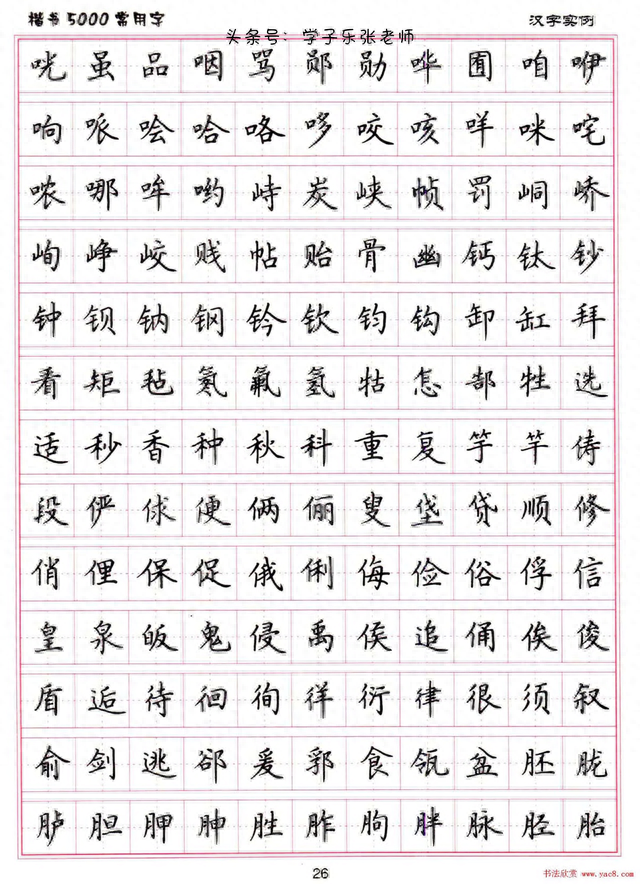 楷书5000常用字 汉字实例
头条号：学子乐张老师
咣 虽 品 咽 骂 郧 勋 哗 囿 咱 咿
响 哌 哙 哈 咯 哆 咬 咳 咩 咪 咤
哝 哪 哞 哟 峙 炭 峡 帧 罚 峒 峤
峋 峥 峧 贱 帖 贻 骨 幽 钙 钛 钞
钟 钡 钠 钢 钤 钦 钧 钩 卸 缸 拜
看 矩 毡 氡 氟 氢 牯 怎 郜 牲 选
适 秒 香 种 秋 科 重 复 竽 竿 俦
段 俨 俅 便 俩 俪 叟 垡 贷 顺 修
俏 俚 保 促 俄 俐 侮 俭 俗 俘 信
皇 泉 皈 鬼 侵 禹 侯 追 俑 俟 俊
盾 逅 待 徊 徇 徉 衍 律 很 须 叙
俞 剑 逃 郤 爰 郛 食 瓴 盆 胚 胧
胪 胆 胛 胂 胜 胙 朐 胖 脉 胫 胎
26
书法欣赏 www.yac8.com